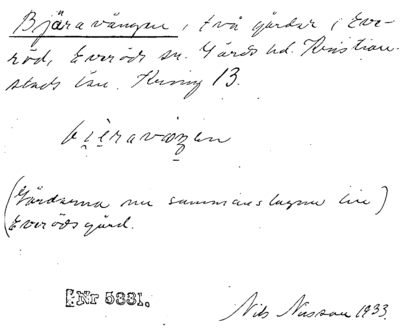 Bjäravången, två gårdar i Eve-
röd, Everöds sn. Gärds hd. Kristian-
stads län. Hemnr 13.
(Gårdarna nu sammanslagna till)
Everödsgård.
Nr 5331.
Nils Nilsson 1933.